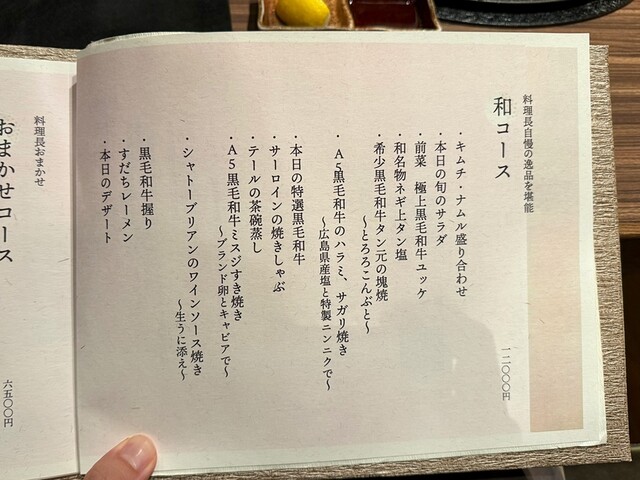 料理長自慢の逸品を堪能
和コース
一二〇〇〇円
・キムチ・ナムル盛り合わせ
・本日の旬のサラダ
・前菜 極上黒毛和牛ユッケ
・和名物ネギ上タン塩
・希少黒毛和牛タン元の塊焼
～とろろこんぶと～
・A5黒毛和牛のハラミ、サガリ焼き
～広島県産塩と特製ニンニクで～
・本日の特選黒毛和牛
・サーロインの焼きしゃぶ
・テールの茶碗蒸し
・A5黒毛和牛ミスジすき焼き
～ブランド卵とキャビアで～
・シャトーブリアンのワインソース焼き
～生うに添え～
・黒毛和牛握り
・すだちレーメン
・本日のデザート
料理長おまかせ
おまかせコース
六五〇〇円